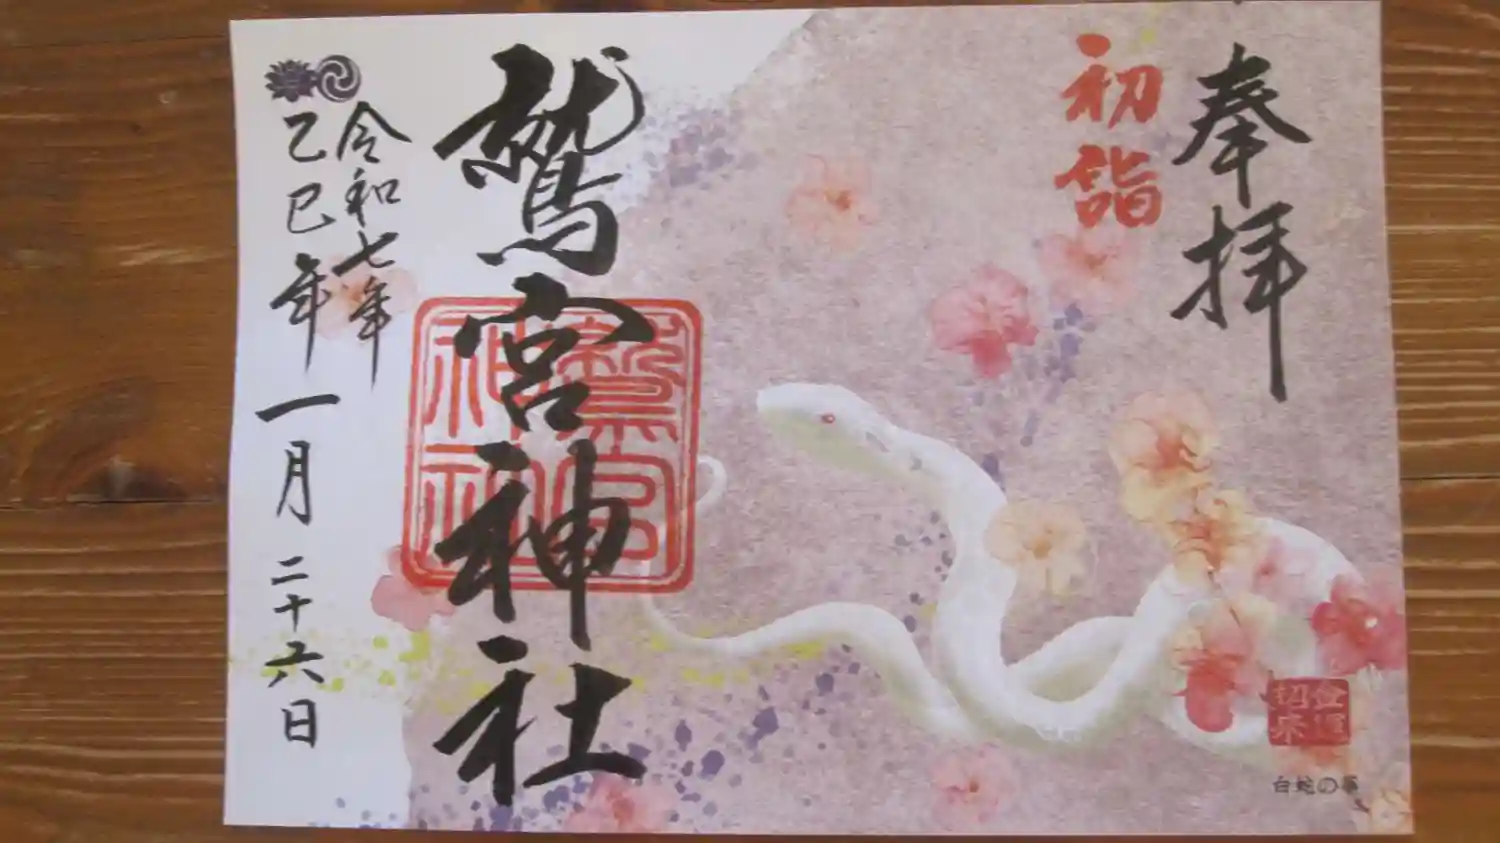 奉拝
初詣
鷲宮神社
令和七年
乙巳年
一月二十六日
鷲宮神社
金運招来
白蛇の夢